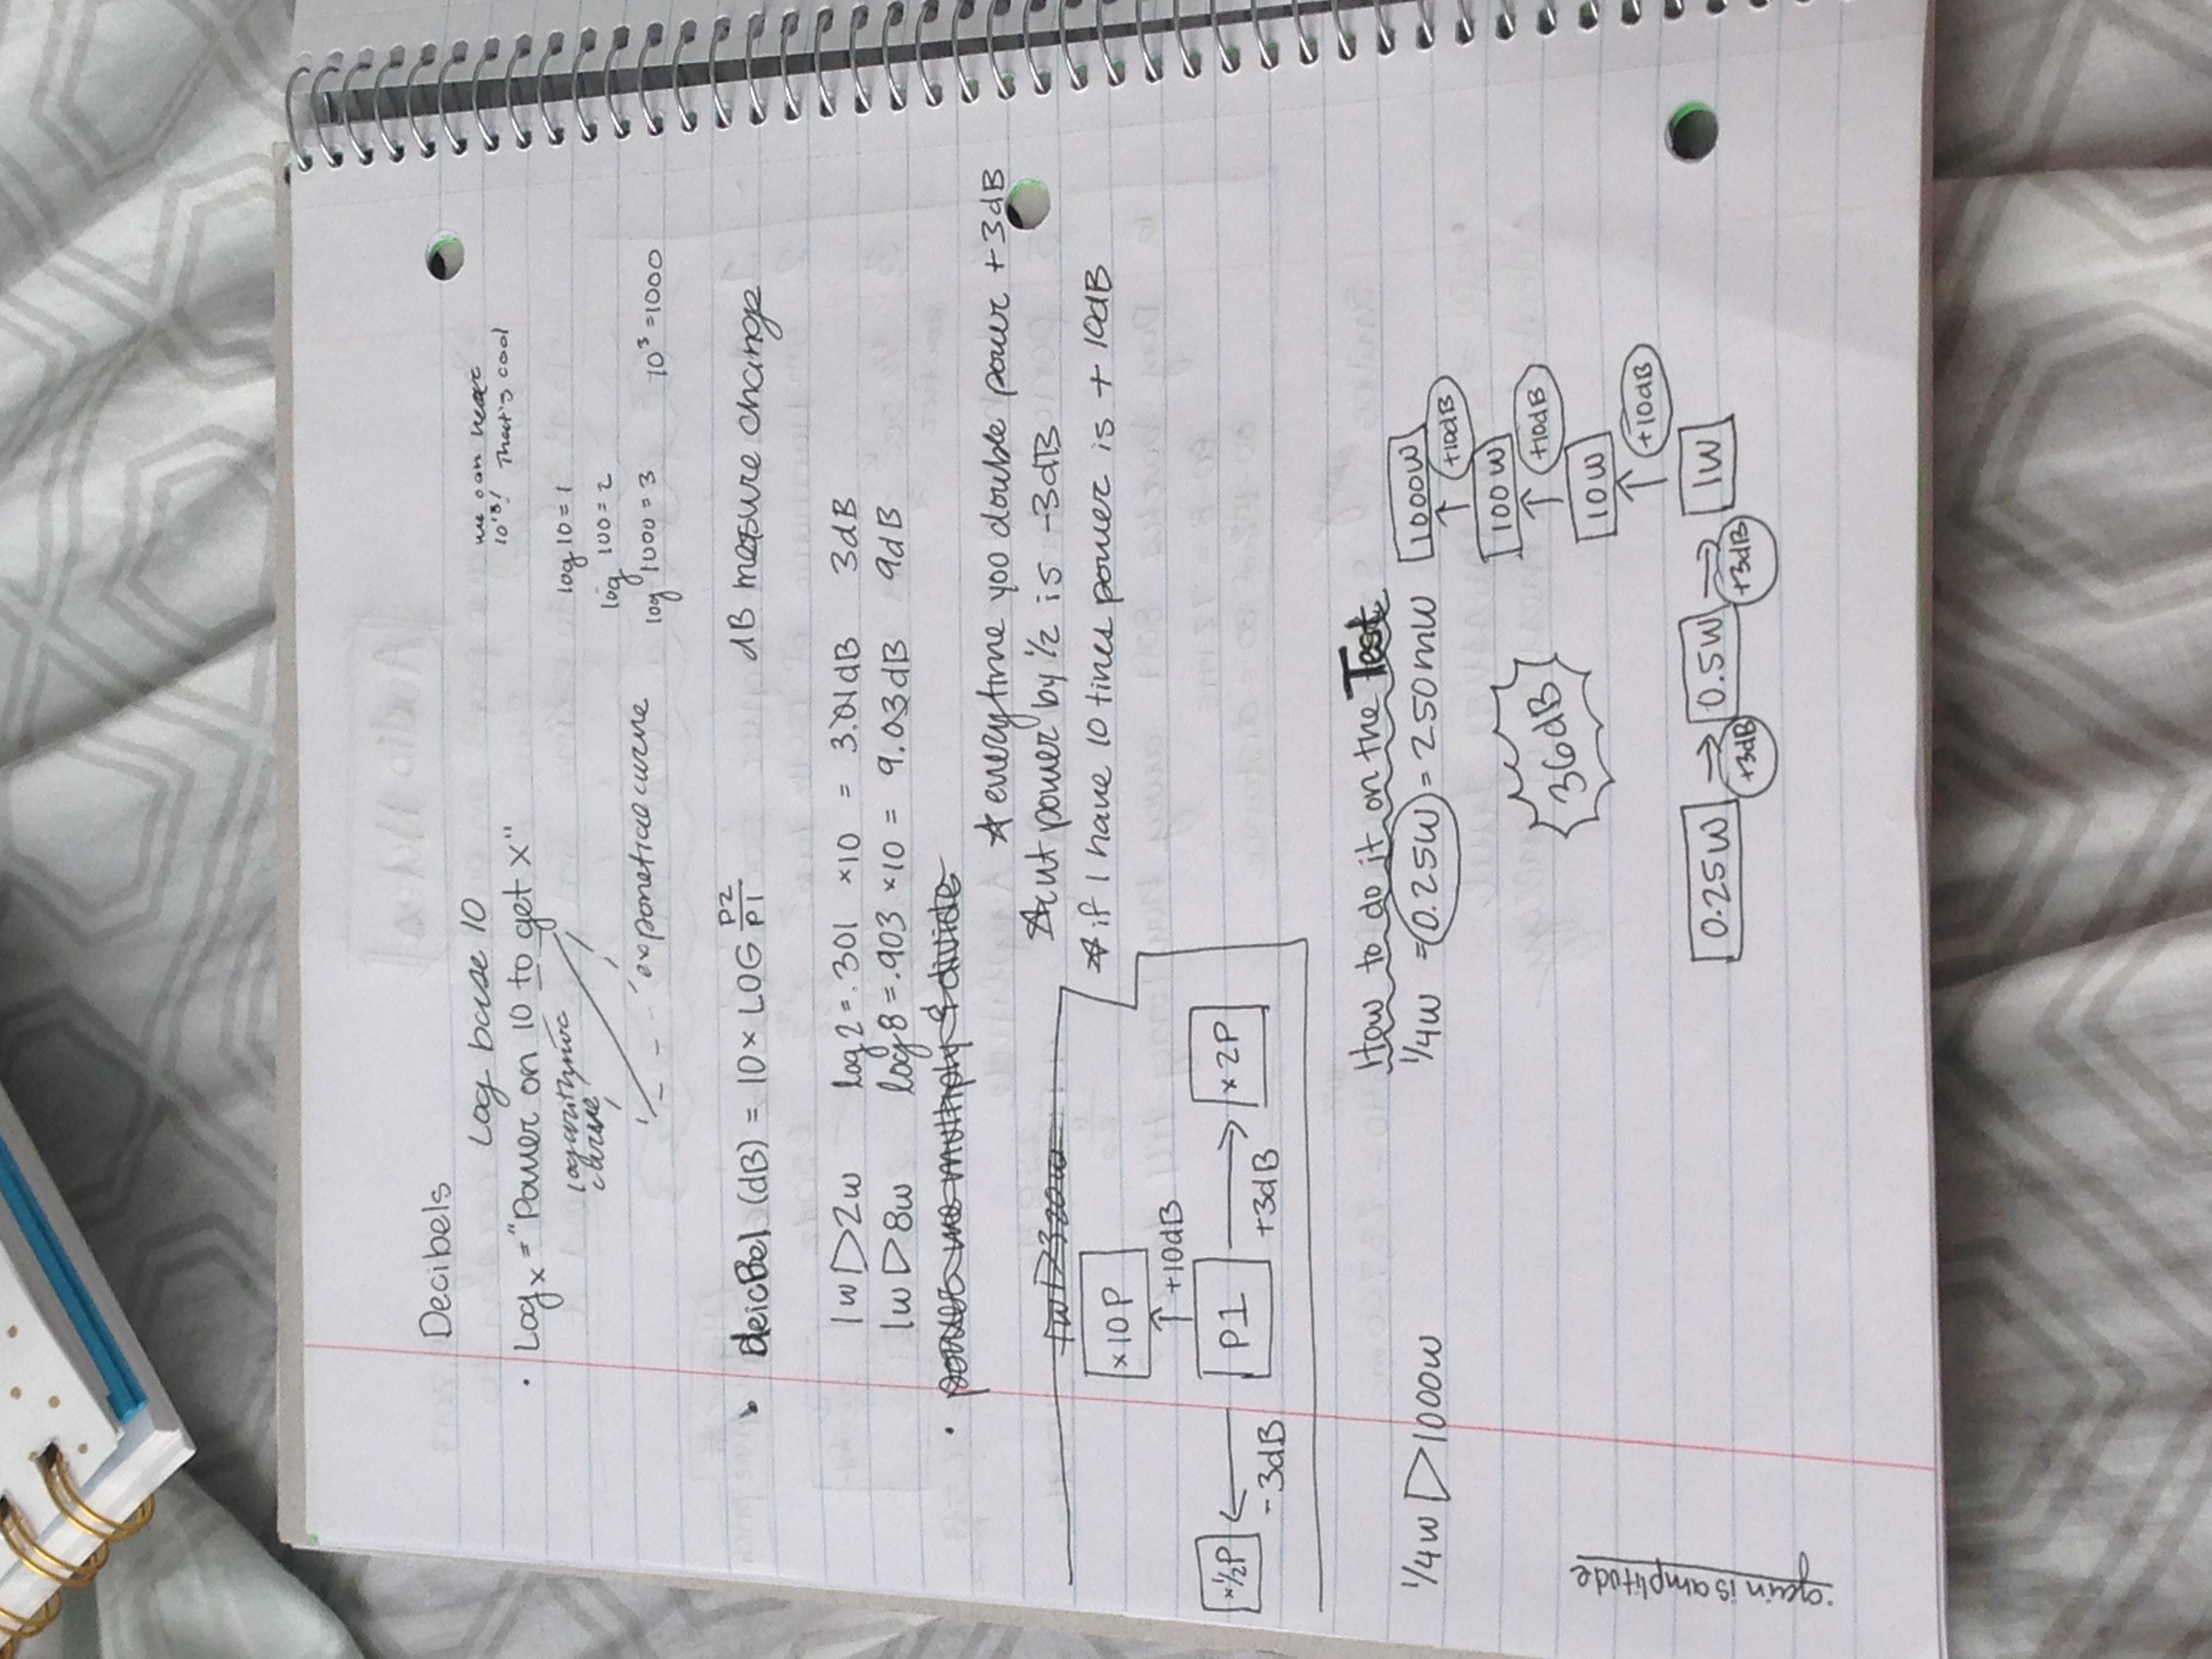 Decibels
Log base 10
we can hear
10¹³! That's cool
· Log x = "Power on 10 to get x"
logarithmic
curve
exponetial curve
log 10 = 1
log 100 = 2
log 1000 = 3 10³ = 1000
· deicBel (dB) = 10 × LOG P2/P1 dB measure change
1w ▷ 2w log 2 = .301 ×10 = 3.01dB 3dB
1w ▷ 8w log 8 = .903 ×10 = 9.03dB 9dB
· power we multiply & divide
☆ everytime you double power +3dB
☆ cut power by 1/2 is -3dB
☆ if I have 10 times power is + 10dB
1w ▷ 320w
×10P
↑ +10dB
×1/2P ← P1 → ×2P
-3dB +3dB
How to do it on the Test
1/4w ▷ 1000w 1/4w = 0.25w = 250mW
1000W
↑ +10dB
100W
↑ +10dB
36dB
10W
↑ +10dB
0.25W → 0.5W → 1W
+3dB +3dB
· gain is amplitude